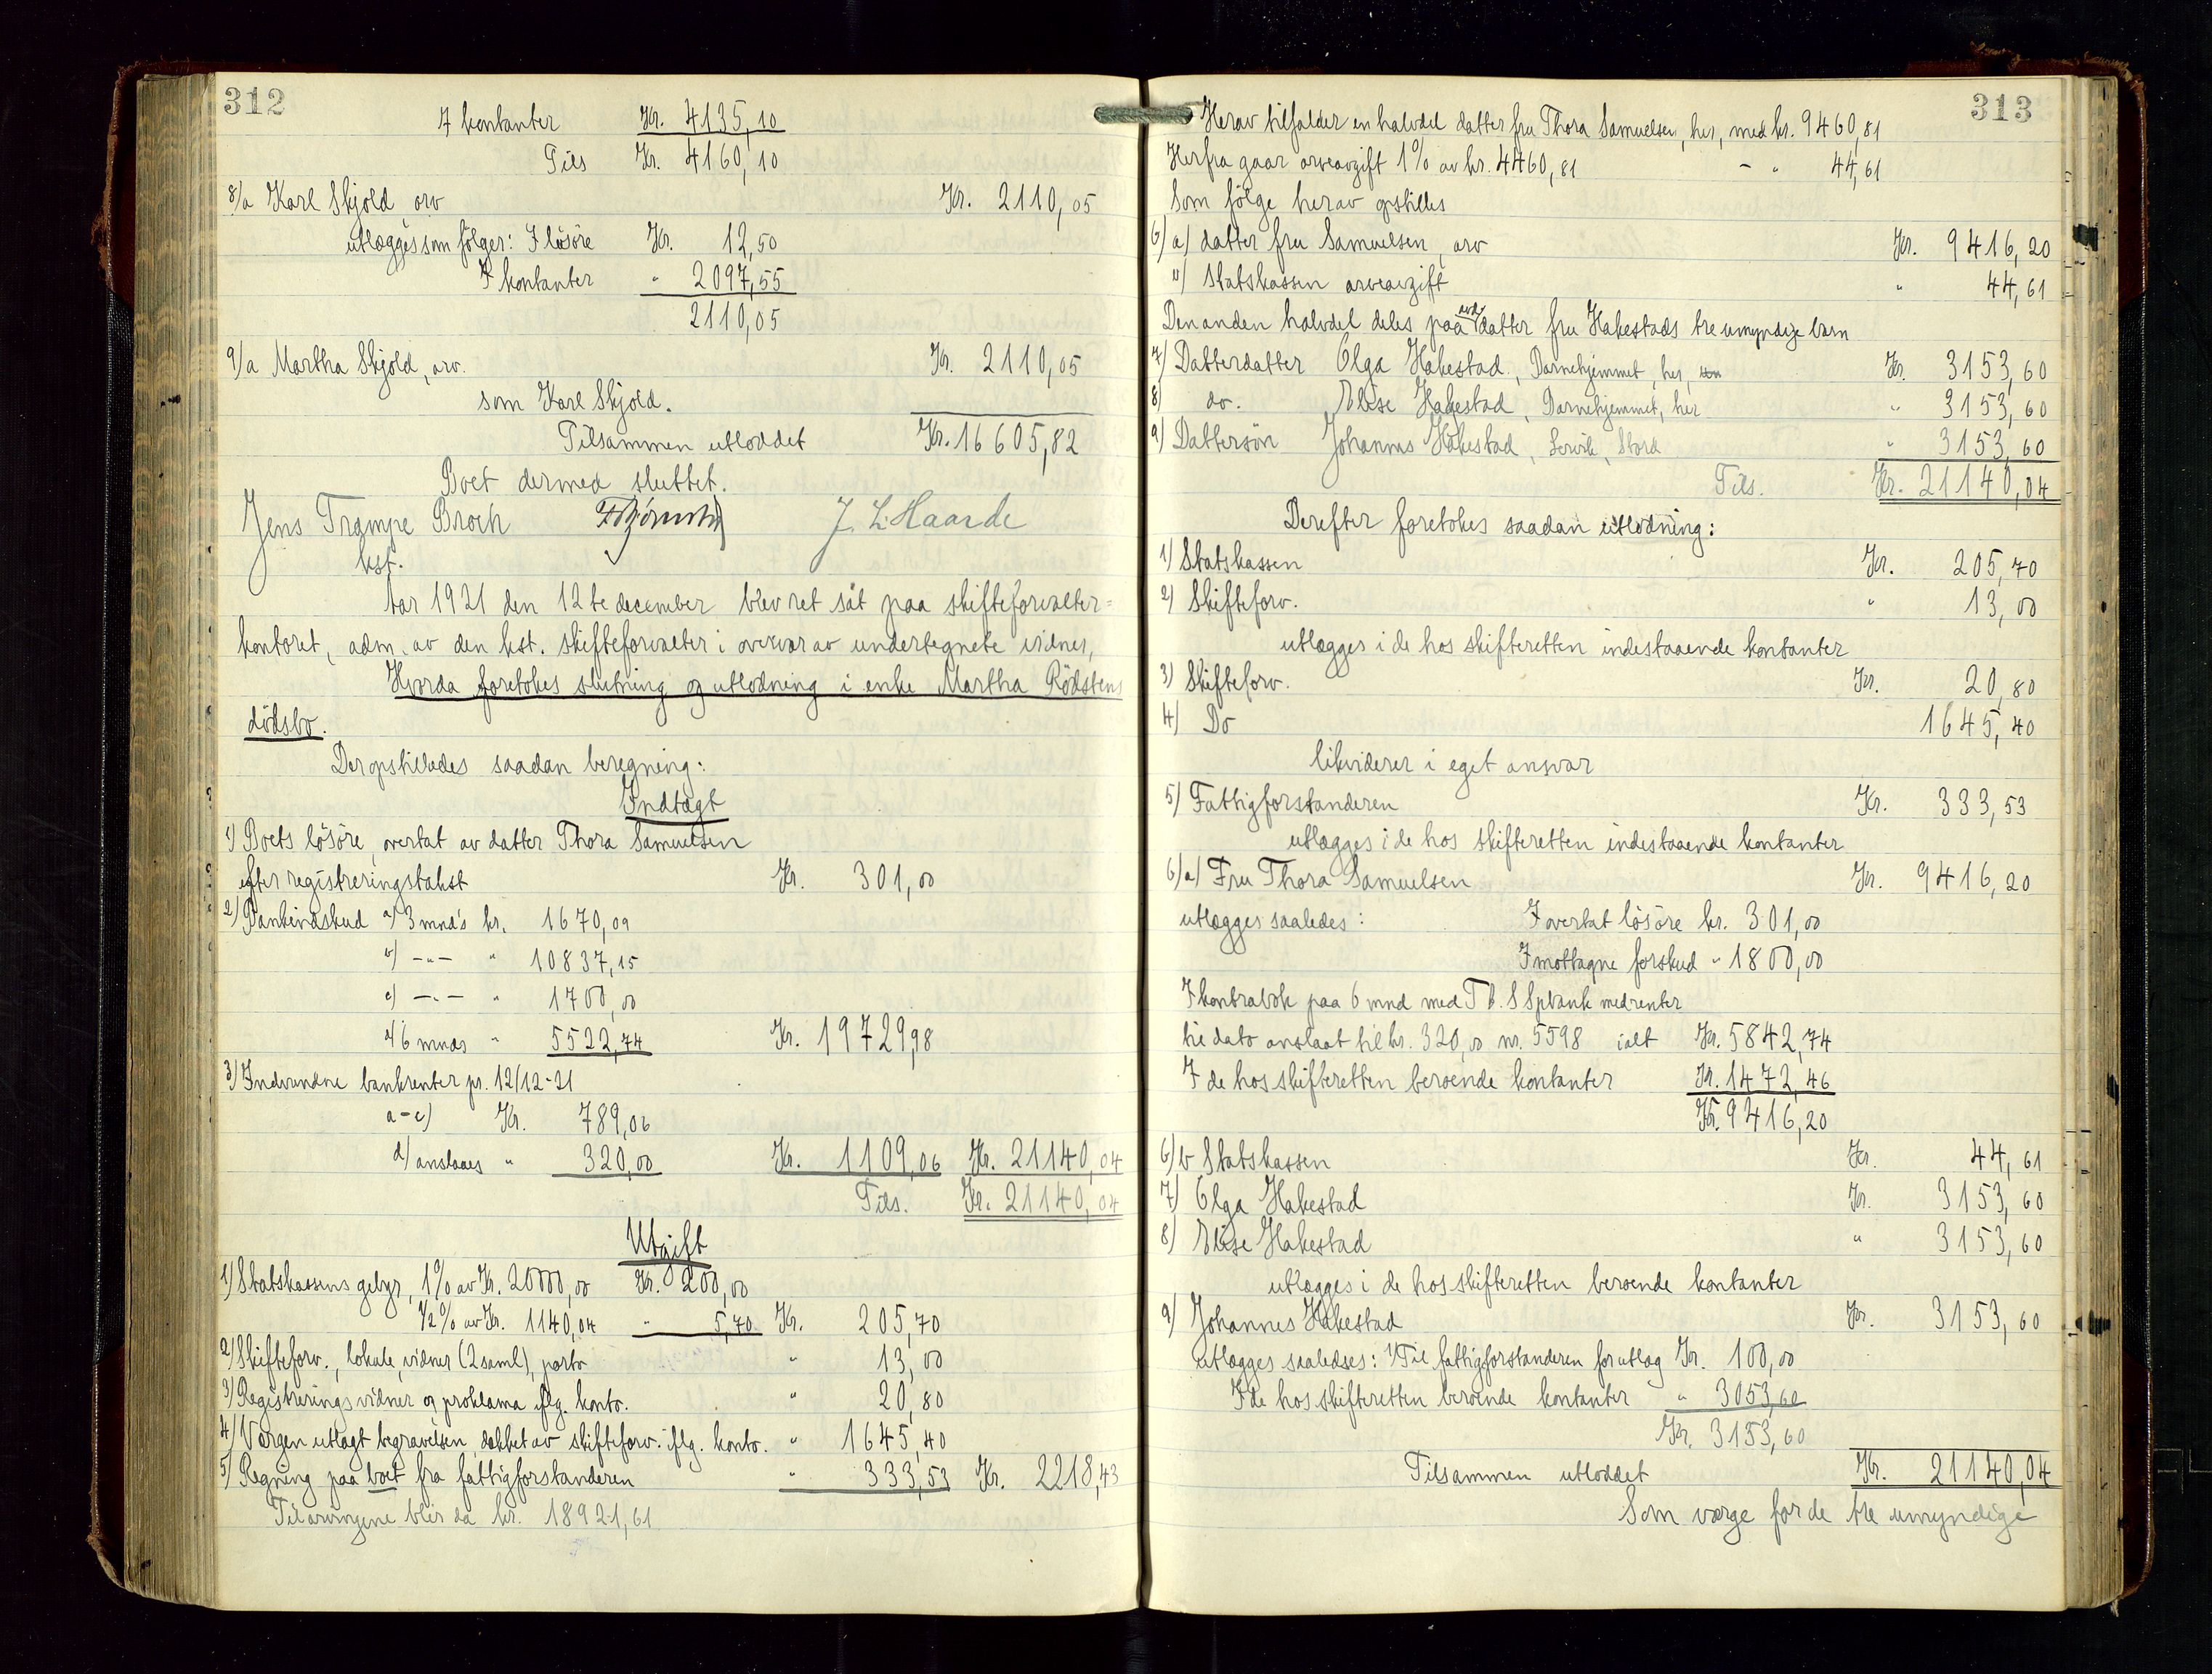 312
I kontanter Kr. 4135,10
Tils Kr. 4160,10
8/a Karl Skjold, arv Kr. 2110,05
utlægges som følger: I løsøre Kr. 12,50
I kontanter " 2097,55
2110,05
9/a Martha Skjold, arv. Kr. 2110,05
som Karl Skjold.
Tilsammen utloddet Kr. 16605,82
Boet dermed sluttet.
Jens Trampe Broch J. L. Haarde
kst.
Aar 1921 den 12te december blev ret sat paa skifteforvalter=
kontoret, adm. av den kst. skifteforvalter i overvær av undertegnete vidner,
Hvorda foretokes slutning og utlodning i enke Martha Rödstens
dödsbo.
Der opstilledes saadan beregning:
Indtægt
1) Boets løsøre, overtat av datter Thora Samuelsen
efter registreringstakst Kr. 301,00
2) Bankindskud a) 3 mnd's kr. 1670,09
b) -"- " 10837,15
c) -"- " 1700,00
d) 6 mnds " 5522,74 Kr. 19729,98
3) Indvundne bankrenter pr. 12/12-21
a-c) Kr. 789,06
d) anslaaes " 320,00 Kr. 1109,06 Kr. 21140,04
Tils. Kr. 21140,04
Utgift
1) Statskassens gebyr, 1% av Kr. 20000,00 Kr. 200,00
1/2% av Kr. 1140,04 " 5,70 Kr. 205,70
2) Skifteforv., lokale, vidner (2 saml), porto " 13,00
3) Registreringsvidner og proklama iflg. konto. " 20,80
4) Værgen utlagt begravelsen dækket av skifteforv. iflg. konto. " 1645,40
5) Regning paa boet fra fattigforstanderen " 333,53 Kr. 2218,43
Til arvingene blir da kr. 18921,61
313
Herav tilfalder en halvdel datter fru Thora Samuelsen, her, med kr. 9460,81
Herfra gaar arveavgift 1% av kr. 4460,81 - " 44,61
Som følge herav opstilles
6) a) datter fru Samuelsen, arv Kr. 9416,20
b) Statskassen arveavgift " 44,61
Den anden halvdel deles paa avd. datter fru Hakestads tre umyndige barn
7) Datterdatter Olga Hakestad, Barnehjemmet, her, Kr. 3153,60
8) do. Elise Hakestad, Barnehjemmet, her " 3153,60
9) Dattersøn Johannes Hakestad, Lervik, Stord " 3153,60
Tils. Kr. 21140,04
Derefter foretokes saadan utlodning:
1) Statskassen Kr. 205,70
2) Skifteforv. " 13,00
utlægges i de hos skifteretten indestaaende kontanter
3) Skifteforv. Kr. 20,80
4) Do 1645,40
likviderer i eget ansvar
5) Fattigforstanderen Kr. 333,53
utlægges i de hos skifteretten indestaaende kontanter
6/a) Fru Thora Samuelsen Kr. 9416,20
utlægges saaledes: I overtat løsøre kr. 301,00
I mottagne forskud " 1800,00
I kontrabok paa 6 mnd med T b. S Spbank med renter
til dato anslaat til kr. 320,00 nr. 5598 ialt Kr. 5842,74
I de hos skifteretten beroende kontanter Kr. 1472,46
Kr. 9416,20
6/b Statskassen Kr. 44,61
7) Olga Hakestad Kr. 3153,60
8) Elise Hakestad " 3153,60
utlægges i de hos skifteretten beroende kontanter
9) Johannes Hakestad Kr. 3153,60
utlægges saaledses: 1/ Til fattigforstanderen for utlæg Kr. 100,00
I de hos skifteretten beroende kontanter " 3053,60
Kr. 3153,60
Tilsammen utloddet Kr. 21140,04
Som værge for de tre umyndige